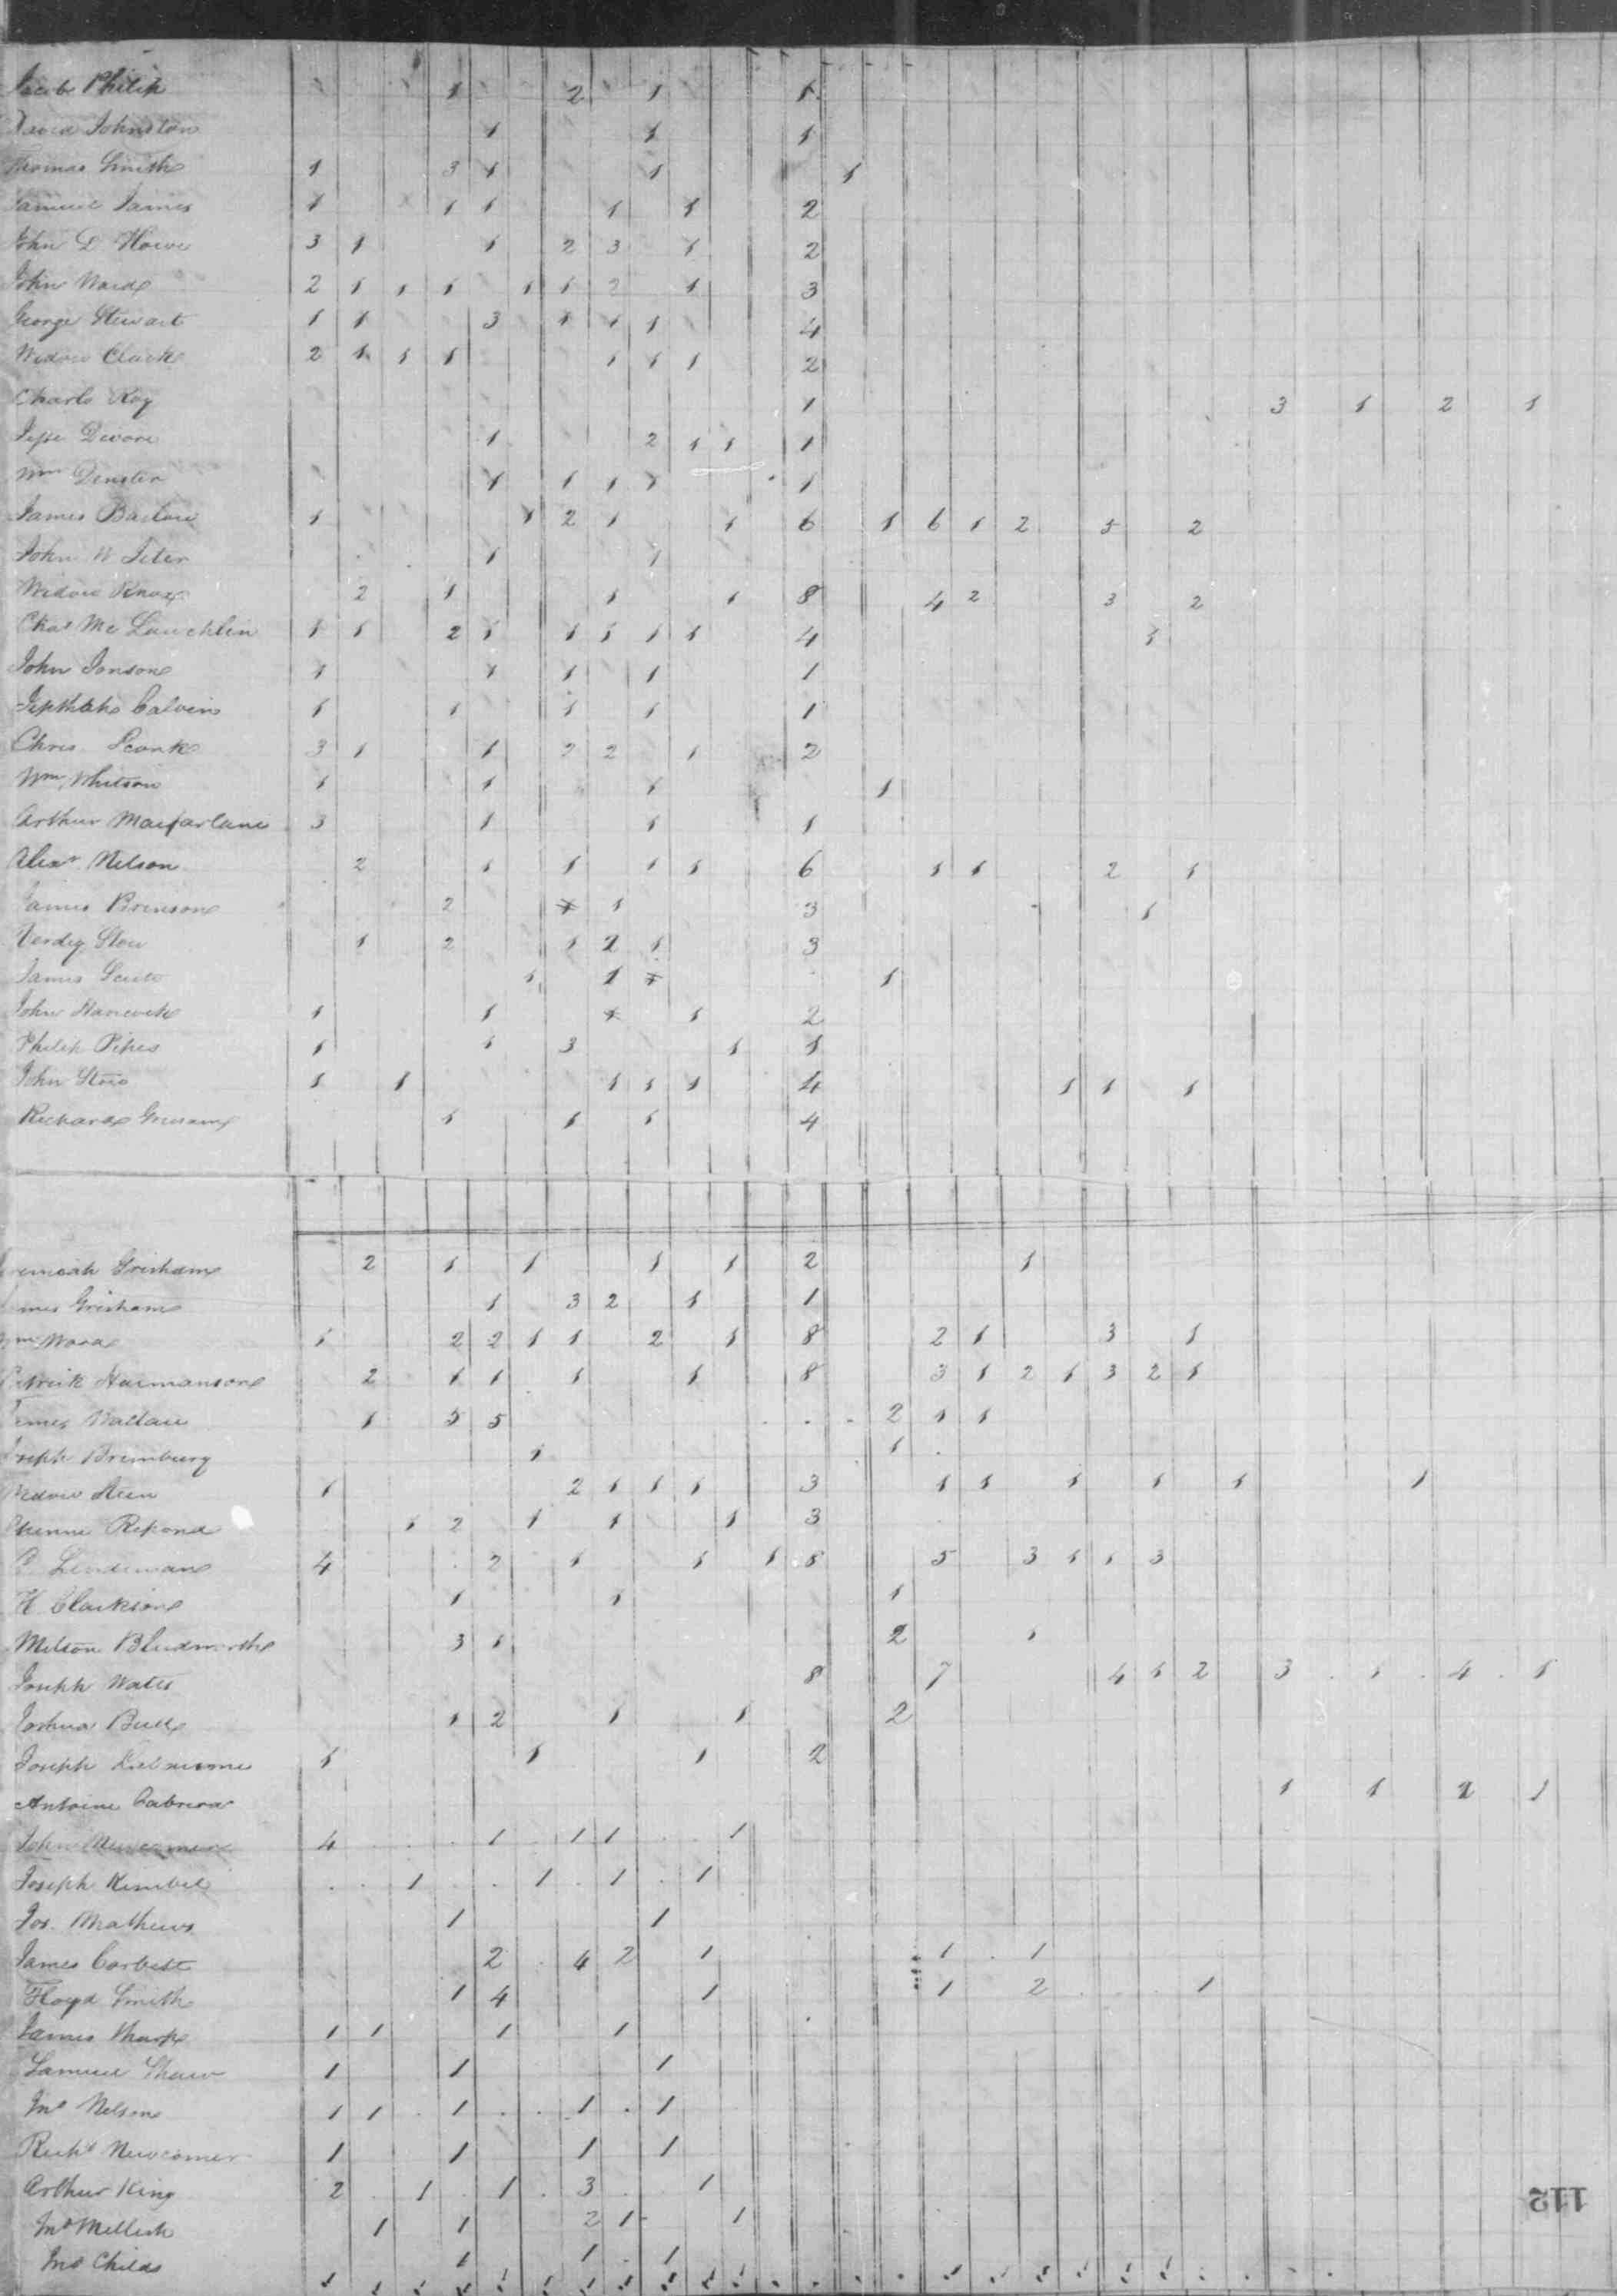 Jacob Philip 1 2 1 1
David Johnston 1 1 1
Thomas Smith 1 3 1 1 1
Samuel James 1 1 1 1 1 2
John D Howe 3 1 1 2 3 1 2
John Ward 2 1 1 1 1 1 2 1 3
George Stewart 1 1 3 1 1 1 4
Widow Clark 2 1 1 1 1 1 1 2
Charls Roy 1 3 1 2 1
1 2 1 1 1
Wm 1 1 1 1 1
James 1 1 2 1 1 6 1 6 1 2 5 2
John W 1 1
Widow Knox 2 1 1 1 8 4 2 3 2
Chas Mc Lauchlin 1 1 2 1 1 1 1 1 4 1
John Jonson 1 1 1 1 1
Jepthah Calvin 1 1 1 1 1
Chris 3 1 1 2 2 1 2
Wm Whitson 1 1 1 1
Arthur Macfarlane 3 1 1 1
Alexr Nelson 2 1 1 1 1 6 1 1 2 1
James Brinson 2 1 3 1
Stow 1 2 1 2 1 3
James 1 1 1
John Hancock 1 1 1 2
Philip Pipes 1 1 3 1 1
John Stow 1 1 1 1 1 4 1 1 1
Richard 1 1 1 4
Grisham 2 1 1 1 1 2 1
Grisham 1 3 2 1 1
Ward 1 2 2 1 1 2 1 8 2 1 3 1
Harmanson 2 1 1 1 1 8 3 1 2 1 3 2 1
Wallace 1 5 5 2 1 1
1 1
Widow 1 2 1 1 1 3 1 1 1 1 1 1
1 2 1 1 1 3
Lindeman 4 2 1 1 1 8 5 3 1 1 3
H Clarkson 1 1 1
Milton Bludworth 3 1 2 1
Joseph 8 7 4 1 2 3 1 4 1
Joshua 1 2 1 1 2
Joseph 1 1 1 2
Antoine Cabrera 1 1 2 1
John Newcomer 4 1 1 1 1
Joseph Kimbel 1 1 1 1
Jos. Mathews 1 1
James Corbett 2 4 2 1 1 1
Floyd Smith 1 4 1 1 2 1
James Tharp 1 1 1 1
Samuel Shaw 1 1 1
Jno Nelson 1 1 1 1 1
Richd Newcomer 1 1 1 1
Arthur King 2 1 1 3 1
Jno 1 1 2 1 1
Jno Childs 1 1 1
112